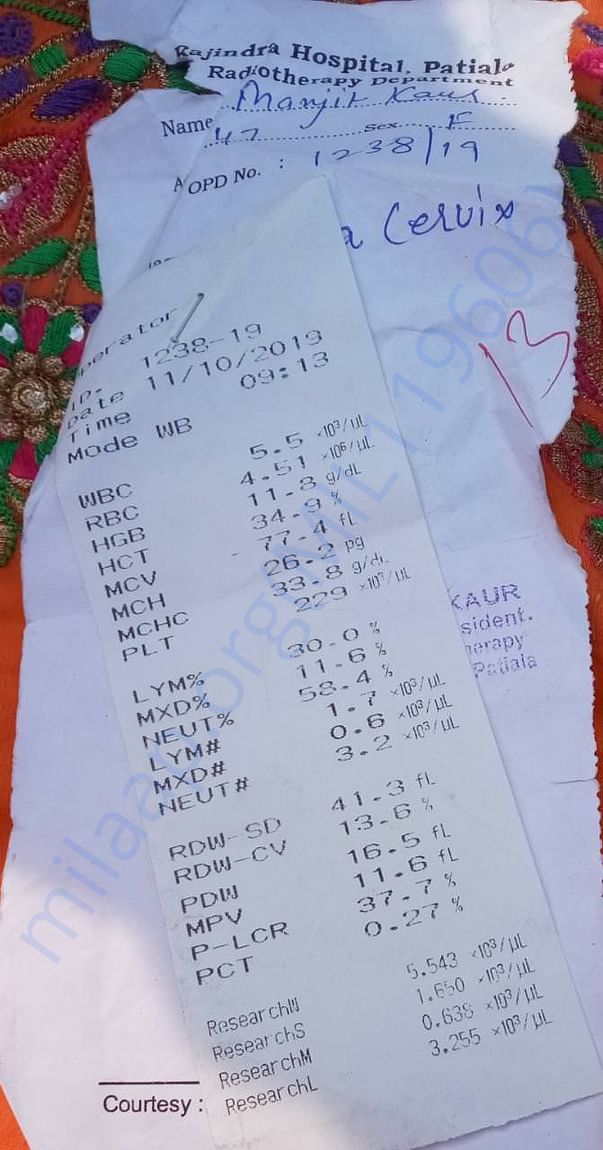 Rajindra Hospital, Patiala
Radiotherapy Department
Name Manjit Kaur
47 Sex F
OPD No. : 1238/19
Cervix
13
perator
ID. 1238-19
Date 11/10/2019
Time 09:13
Mode WB
WBC 5.5 ×10³/µL
RBC 4.51 ×10⁶/µL
HGB 11.8 g/dL
HCT 34.9 %
MCV - 77.4 fL
MCH 26.2 pg
MCHC 33.8 g/dL
PLT 229 ×10³/µL
LYM% 30.0 %
MXD% 11.6 %
NEUT% 58.4 %
LYM# 1.7 ×10³/µL
MXD# 0.6 ×10³/µL
NEUT# 3.2 ×10³/µL
RDW-SD 41.3 fL
RDW-CV 13.6 %
PDW 16.5 fL
MPV 11.6 fL
P-LCR 37.7 %
PCT 0.27 %
ResearchW 5.543 ×10³/µL
ResearchS 1.650 ×10³/µL
ResearchM 0.638 ×10³/µL
ResearchL 3.255 ×10³/µL
KAUR
sident.
herapy
Patiala
Courtesy :